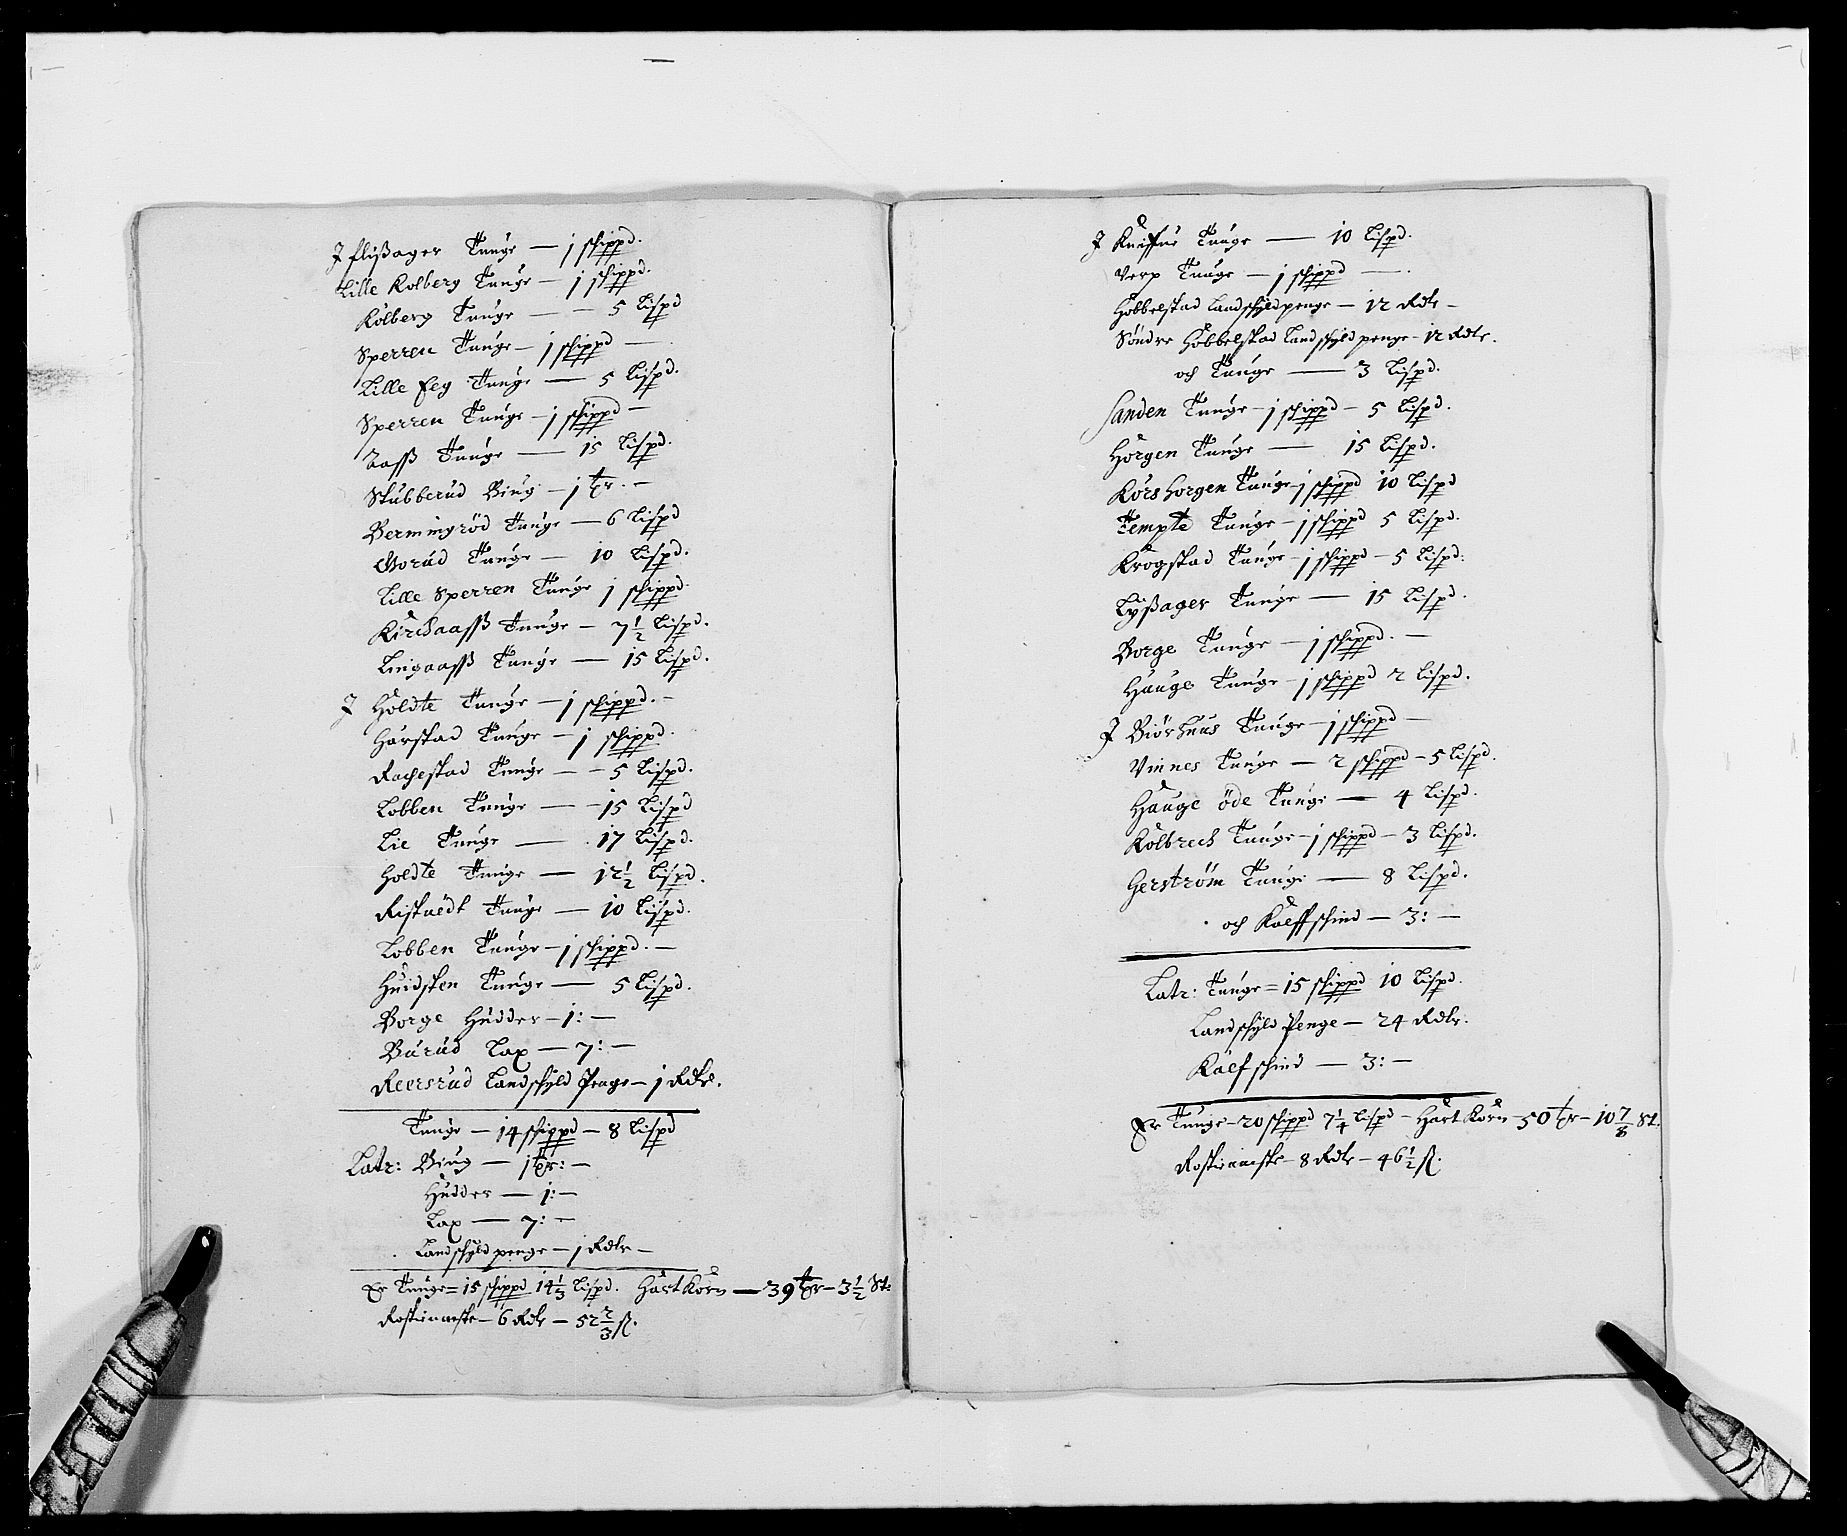 J flÿßager Tunge — j schippd.
Lille Kolberg Tunge — j schippd.
Kolberg Tunge — — 5 Lispd
Sperren Tunge — j schippd —
Lille Eeg Tunge — 5 Lispd.
Sperren Tunge — j schippd —
Aaß Tunge — 15 Lispd.
Stubberud Biug — j tr. —
Bermingröd Tunge — 6 Lispd
Gorud Tunge — 10 Lispd.
Lille Sperren Tunge j schippd.
Kirchaaß Tunge — 7½ Lispd.
Lingaaß Tunge — 15 Lispd.
J Holdte Tunge — j schippd. —
Harstad Tunge — j schippd.
Rachestad Tunge — — 5 Lispd.
Lobben Tunge — — 15 Lispd
Lie Tunge — 17 Lispd.
Holdte Tunge — 12½ Lispd.
Tunge — 10 Lispd.
Lobben Tunge — j schippd. —
Huidsten Tunge — 5 Lispd.
Borge Hudder — 1: —
Burud Lax — 7: —
Reersrud Landschÿld Penge — j Rdr.
Tunge — 14 schippd — 8 Lispd
Latr: Biug — 1 tr: —
Hudder — 1: —
Lax — 7: —
Landschÿld penge — j Rdr —
Er Tunge = 15 schippd 14⅓ Lispd. Hart Korn — 39 tr — 3½ St.
Rostieneste — 6 Rdr — 52⅔ ß.
J Kniffue Tunge — 10 Lispd.
Verp Tunge — j schippd —
Hobbelstad Landschÿldpenge — 12 Rdr —
Söndre Hobbelstad Landschÿld penge — 12 Rdr.
och Tunge — 3 Lispd.
Sanden Tunge — j schippd — 5 Lispd.
Horgen Tunge — 15 Lispd.
Korshorgen Tunge — j schippd 10 Lispd
Tempte Tunge — j schippd 5 Lispd.
Krogstad Tunge — j schippd — 5 Lispd:
Lÿßager Tunge — 15 Lispd.
Borge Tunge — j schippd. —
Hauge Tunge — j schippd 2 Lispd.
J Biörhuus Tunge — j schippd —
Vinnes Tunge — 2 schippd — 5 Lispd.
Hauge öde Tunge — 4 Lispd.
Kolbrech Tunge — j schippd — 3 Lispd.
Gerström Tunge — 8 Lispd.
och Kalffschind — 3: —
Latr: Tunge = 15 schippd 10 Lispd.
Landschÿld Penge — 24 Rdr.
Kalfschind — 3: —
Er Tunge — 20 schippd 7¼ Lispd — Hart Korn — 50 tr — 10⅞ St.
Rostieneste — 8 Rdr — 46½ ß.